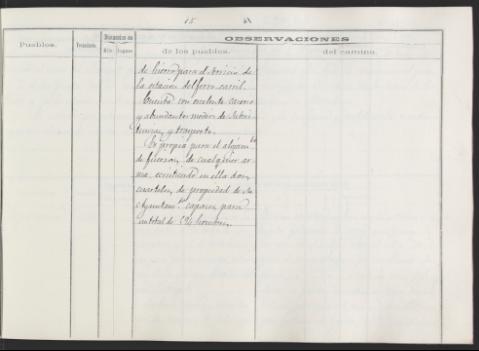 15
OBSERVACIONES
Pueblos.
de los pueblos.
del camino.
de hierro para el servicio de
la estacion del ferro-carril.
Cuenta con excelente caserio
y abundantes medios de subsis
tencia y trasporte.
Es propia para el alojam.to
de fuerzas de cualquier ar
ma, existiendo en ella dos
cuarteles de propiedad de su
Ayuntam.to capaces para
un total de hombres.